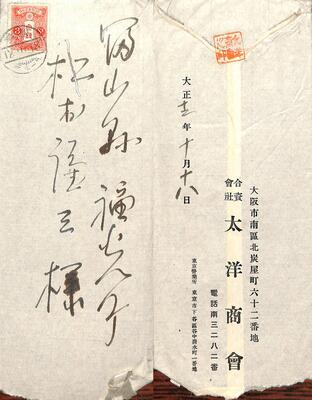 富山縣福光町
松村謹三様
大阪市南區北炭屋町六十二番地
合資會社 太洋商會
電話南三二八二番
東京營業所 東京市下谷區谷中清水町一番地
大正十二年十月十八日